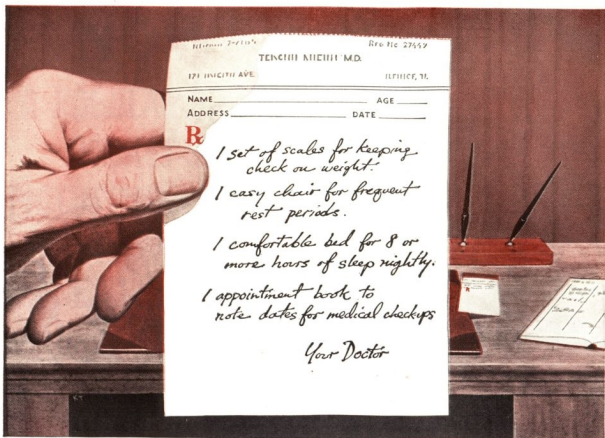 M.D.
AVE.
NAME AGE
ADDRESS DATE
℞
1 set of scales for keeping
check on weight.
1 easy chair for frequent
rest periods.
1 comfortable bed for 8 or
more hours of sleep nightly.
1 appointment book to
note dates for medical checkups
Your Doctor